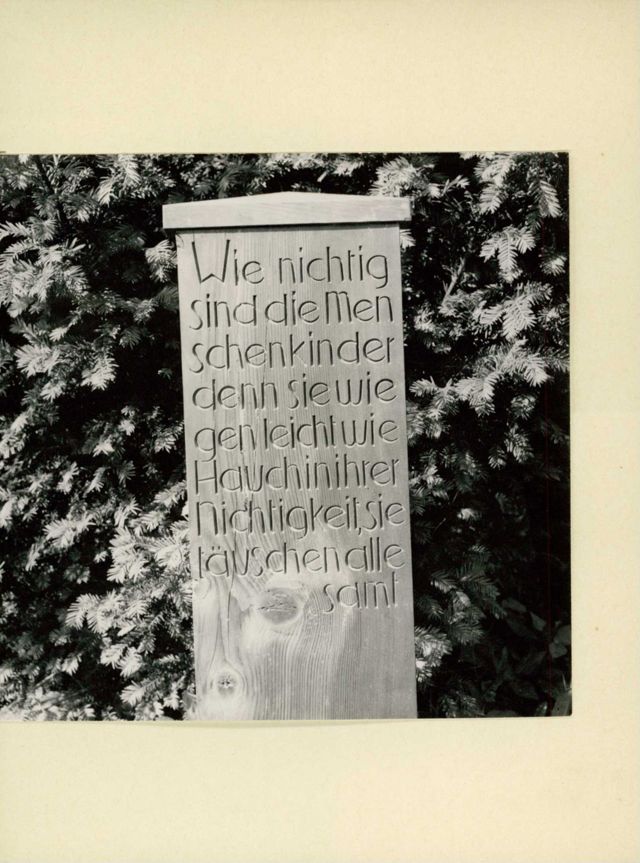 Wie nichtig
sind die Men
schenkinder
denn sie wie
gen leicht wie
Hauch in ihrer
Nichtigkeit, sie
täuschen alle
samt